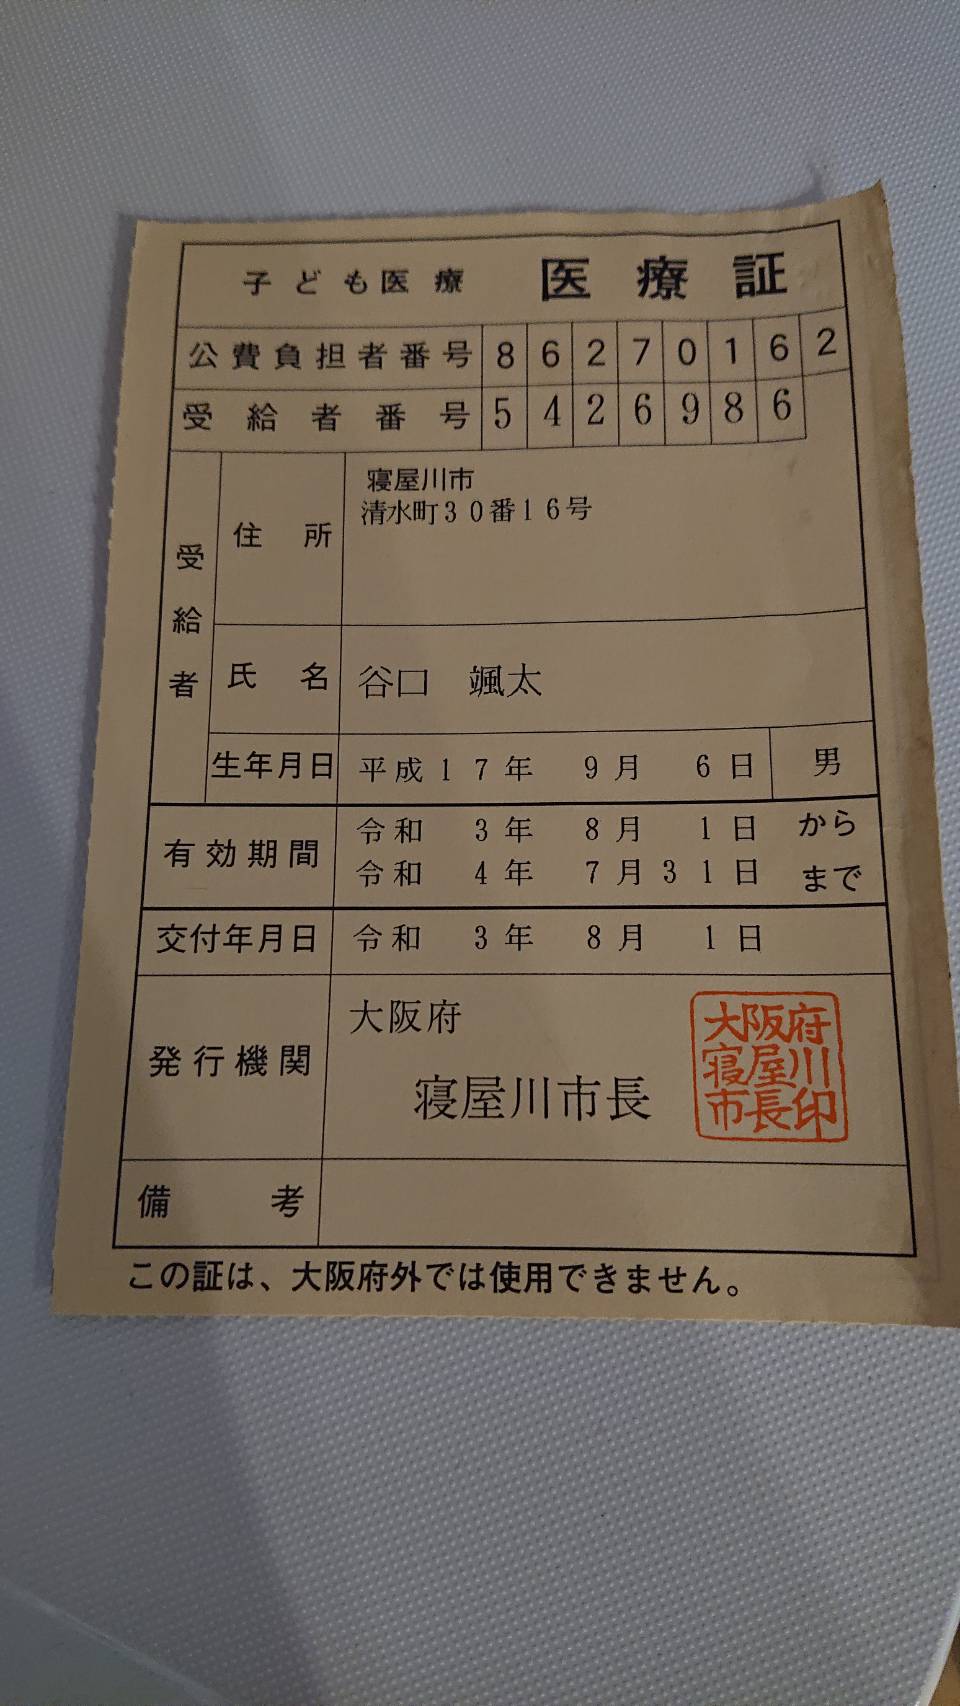 子ども医療 医療証
公費負担者番号 86270162
受給者番号 5426986
受給者
住所 寝屋川市
清水町30番16号
氏名 谷口 颯太
生年月日 平成17年 9月 6日 男
有効期間 令和 3年 8月 1日 から
令和 4年 7月31日 まで
交付年月日 令和 3年 8月 1日
発行機関 大阪府
寝屋川市長
大阪府
寝屋川
市長印
備考
この証は、大阪府外では使用できません。